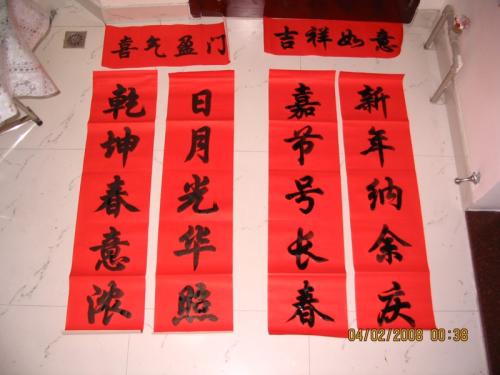 喜气盈门
吉祥如意
日月光华照
乾坤春意浓
新年纳余庆
嘉节号长春
04/02/2008 00:38